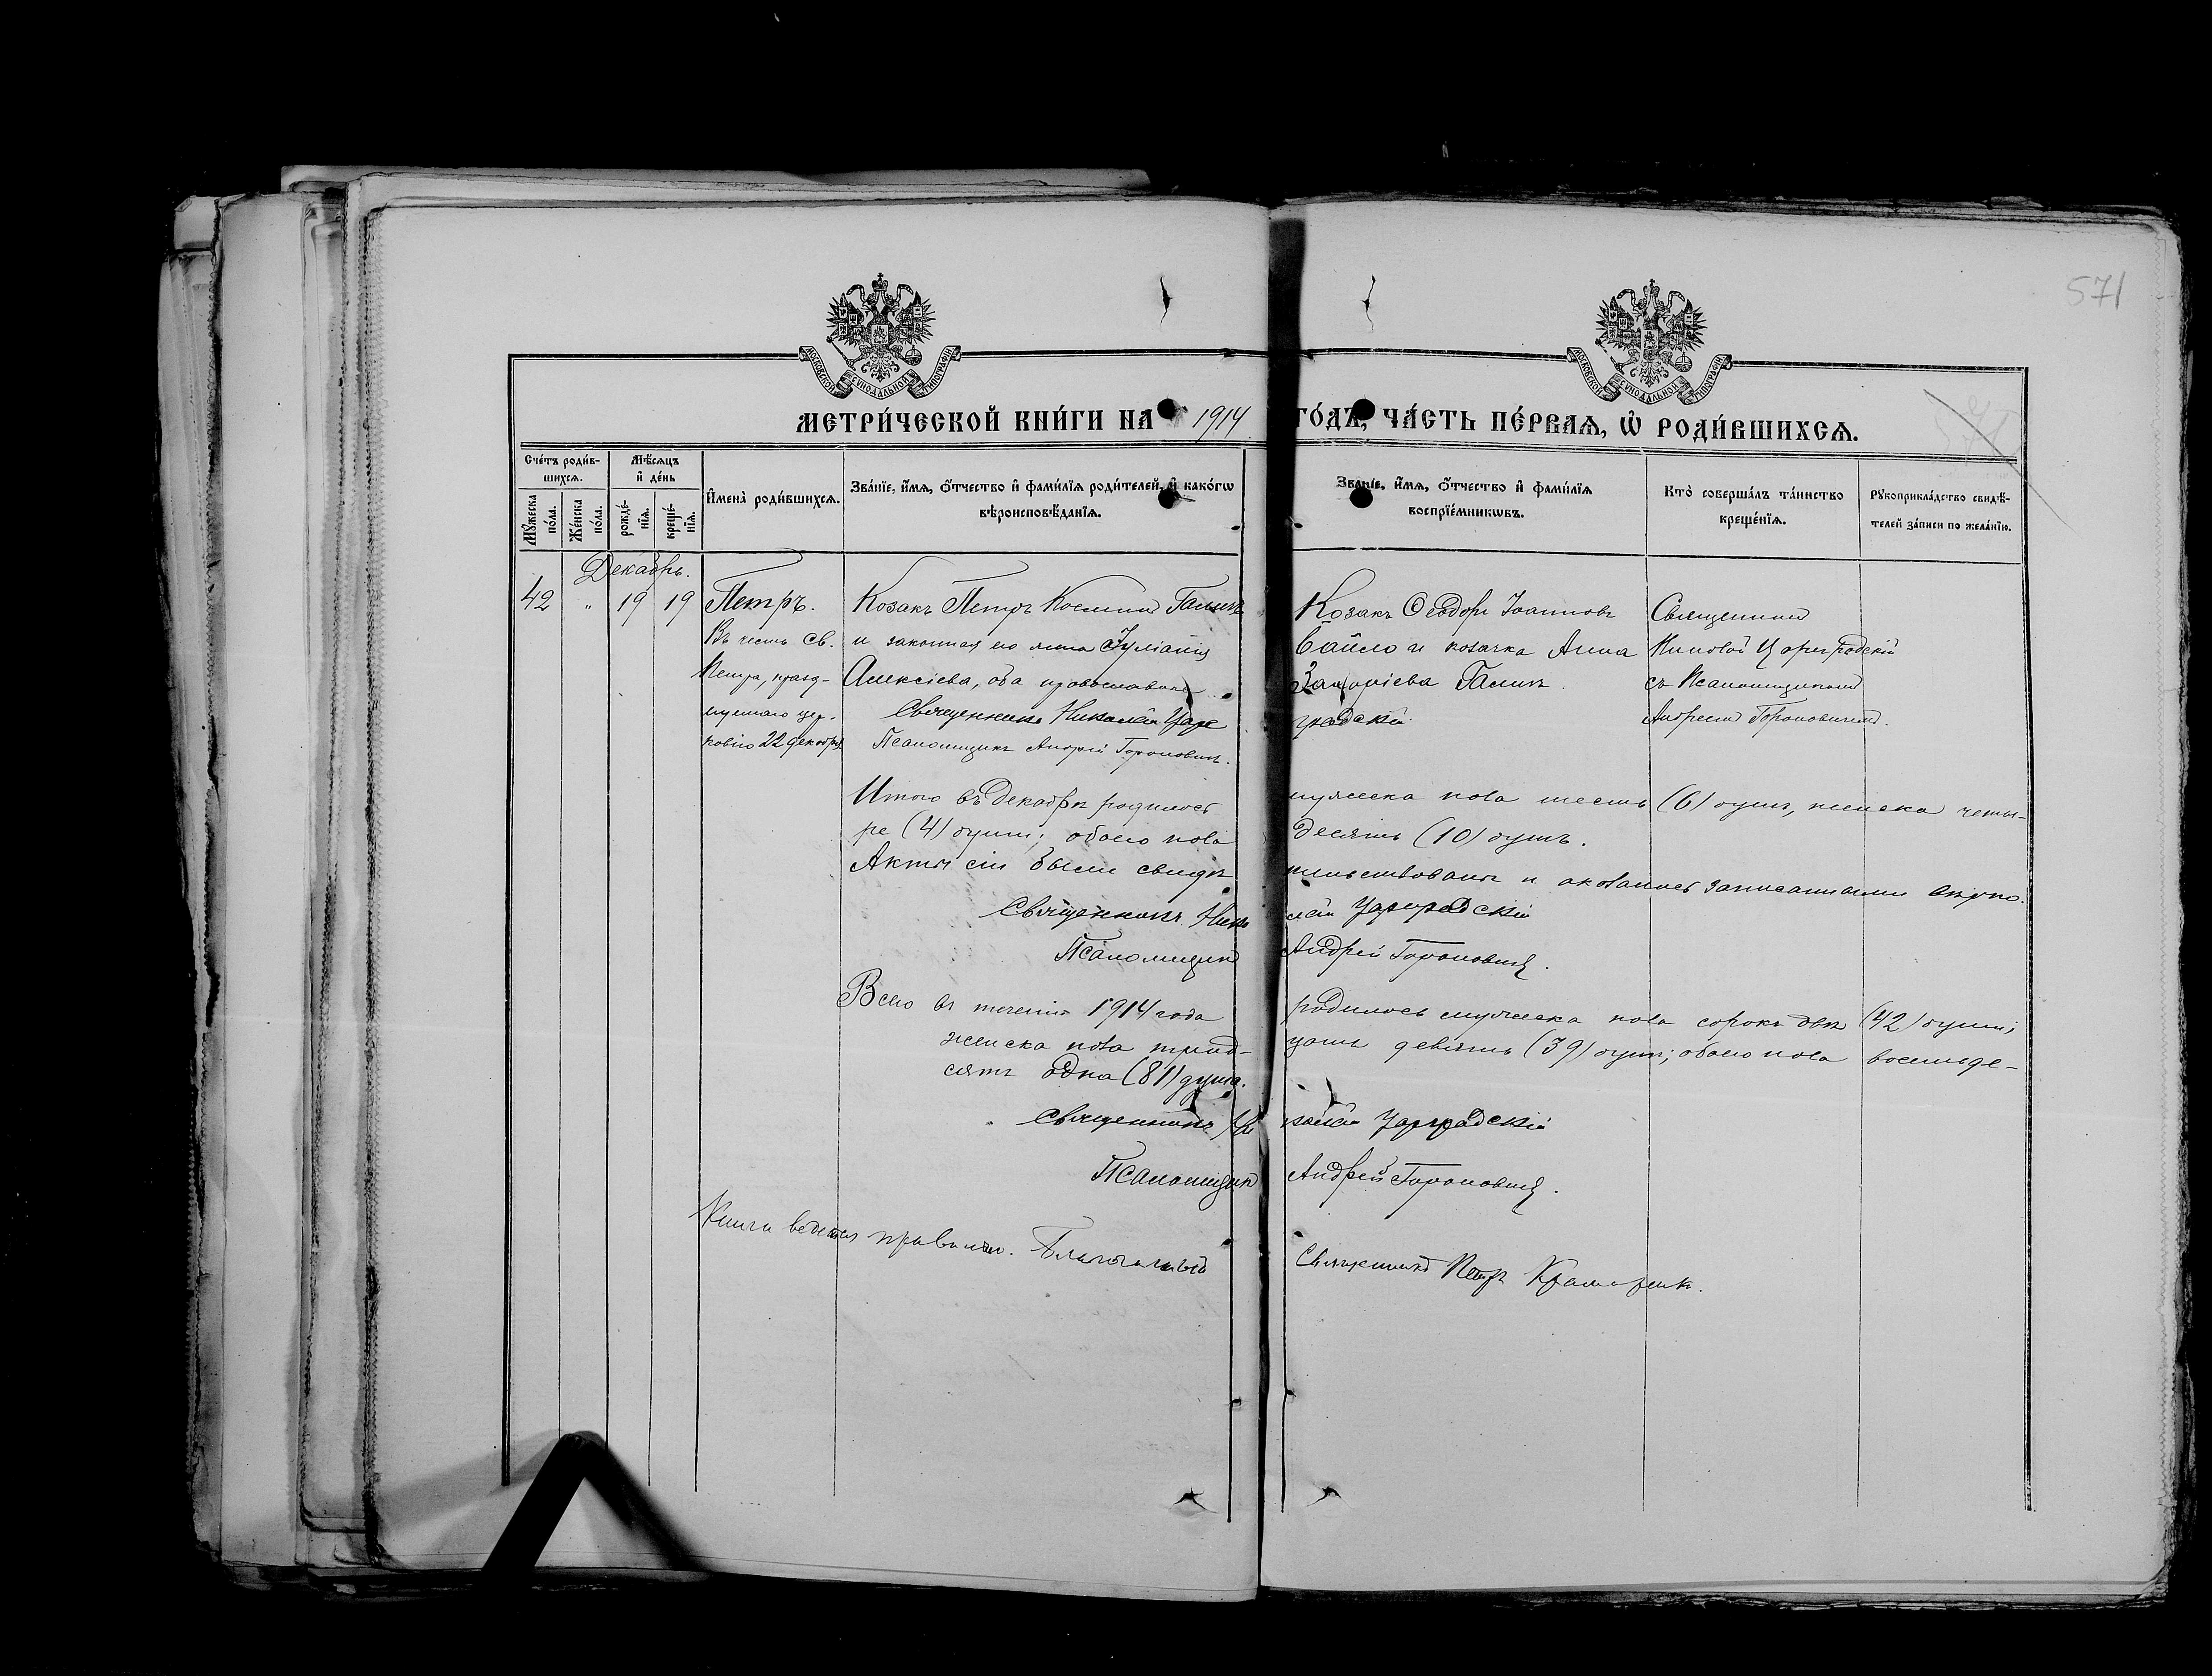 571
МОСКОВСКОЙ СѴНОДАЛЬНОЙ ТИПОГРАФІИ
МОСКОВСКОЙ СѴНОДАЛЬНОЙ ТИПОГРАФІИ
МЕТРИ́ЧЕСКОЙ КНИ́ГИ НА 1914 ГО́ДЪ, ЧА́СТЬ ПЕ́РВАѦ, Ѡ҆ РОДИ́ВШИХСѦ.
Сче́тъ роди́в-
шихсѧ.
Мꙋ́жеска по́ла.
Же́нска по́ла.
Мѣ́сѧцъ
и҆ де́нь
рожде́-
нїѧ.
креще́-
нїѧ.
И҆мена̀ роди́вшихсѧ.
Зва́нїе, и҆́мѧ, ѻ҆́тчество и҆ фами́лїѧ роди́телей, и҆ како́гѡ
вѣроисповѣ́данїѧ.
Зва́нїе, и҆́мѧ, ѻ҆́тчество и҆ фами́лїѧ
воспрїе́мникѡвъ.
Кто̀ соверша́лъ та́инство
креще́нїѧ.
Рꙋкоприкла́дство свидѣ́-
телей за́писи по жела́нїю.
Декабрь.
42 " 19 19 Петръ.
Въ честь Св.
Петра, празд-
нуемаго цер-
ковію 22 декабря
Козакъ Петръ Косминъ Галичъ
и законная его жена Іуліанія
Алексіева, оба православные.
Козакъ Ѳеодоръ Іоанновъ
Байло и козачка Анна
Галичъ.
Священникъ
Николай Цареградскій
съ Псаломщикомъ
Андреемъ Гороновичемъ.
Священникъ Николай Царе градскій
Псаломщикъ Андрей Гороновичъ.
Итого въ Декабрѣ родилось мужеска пола шесть (6) душъ, женска четы-
ре (4) души; обоего пола десять (10) душъ.
Акты сіи были свидѣтельствованы и оказались записанными вѣрно.
Священникъ Николай Цареградскій
Псаломщикъ Андрей Гороновичъ.
Всего въ теченіе 1914 года родилось мужеска пола сорокъ двѣ (42) души;
женска пола тридцать девять (39) душъ; обоего пола восемьде-
сятъ одна (81) душа.
Священникъ Николай Цареградскій
Псаломщикъ Андрей Гороновичъ.
Книга ведется правильно. Благочинный Священникъ Петръ